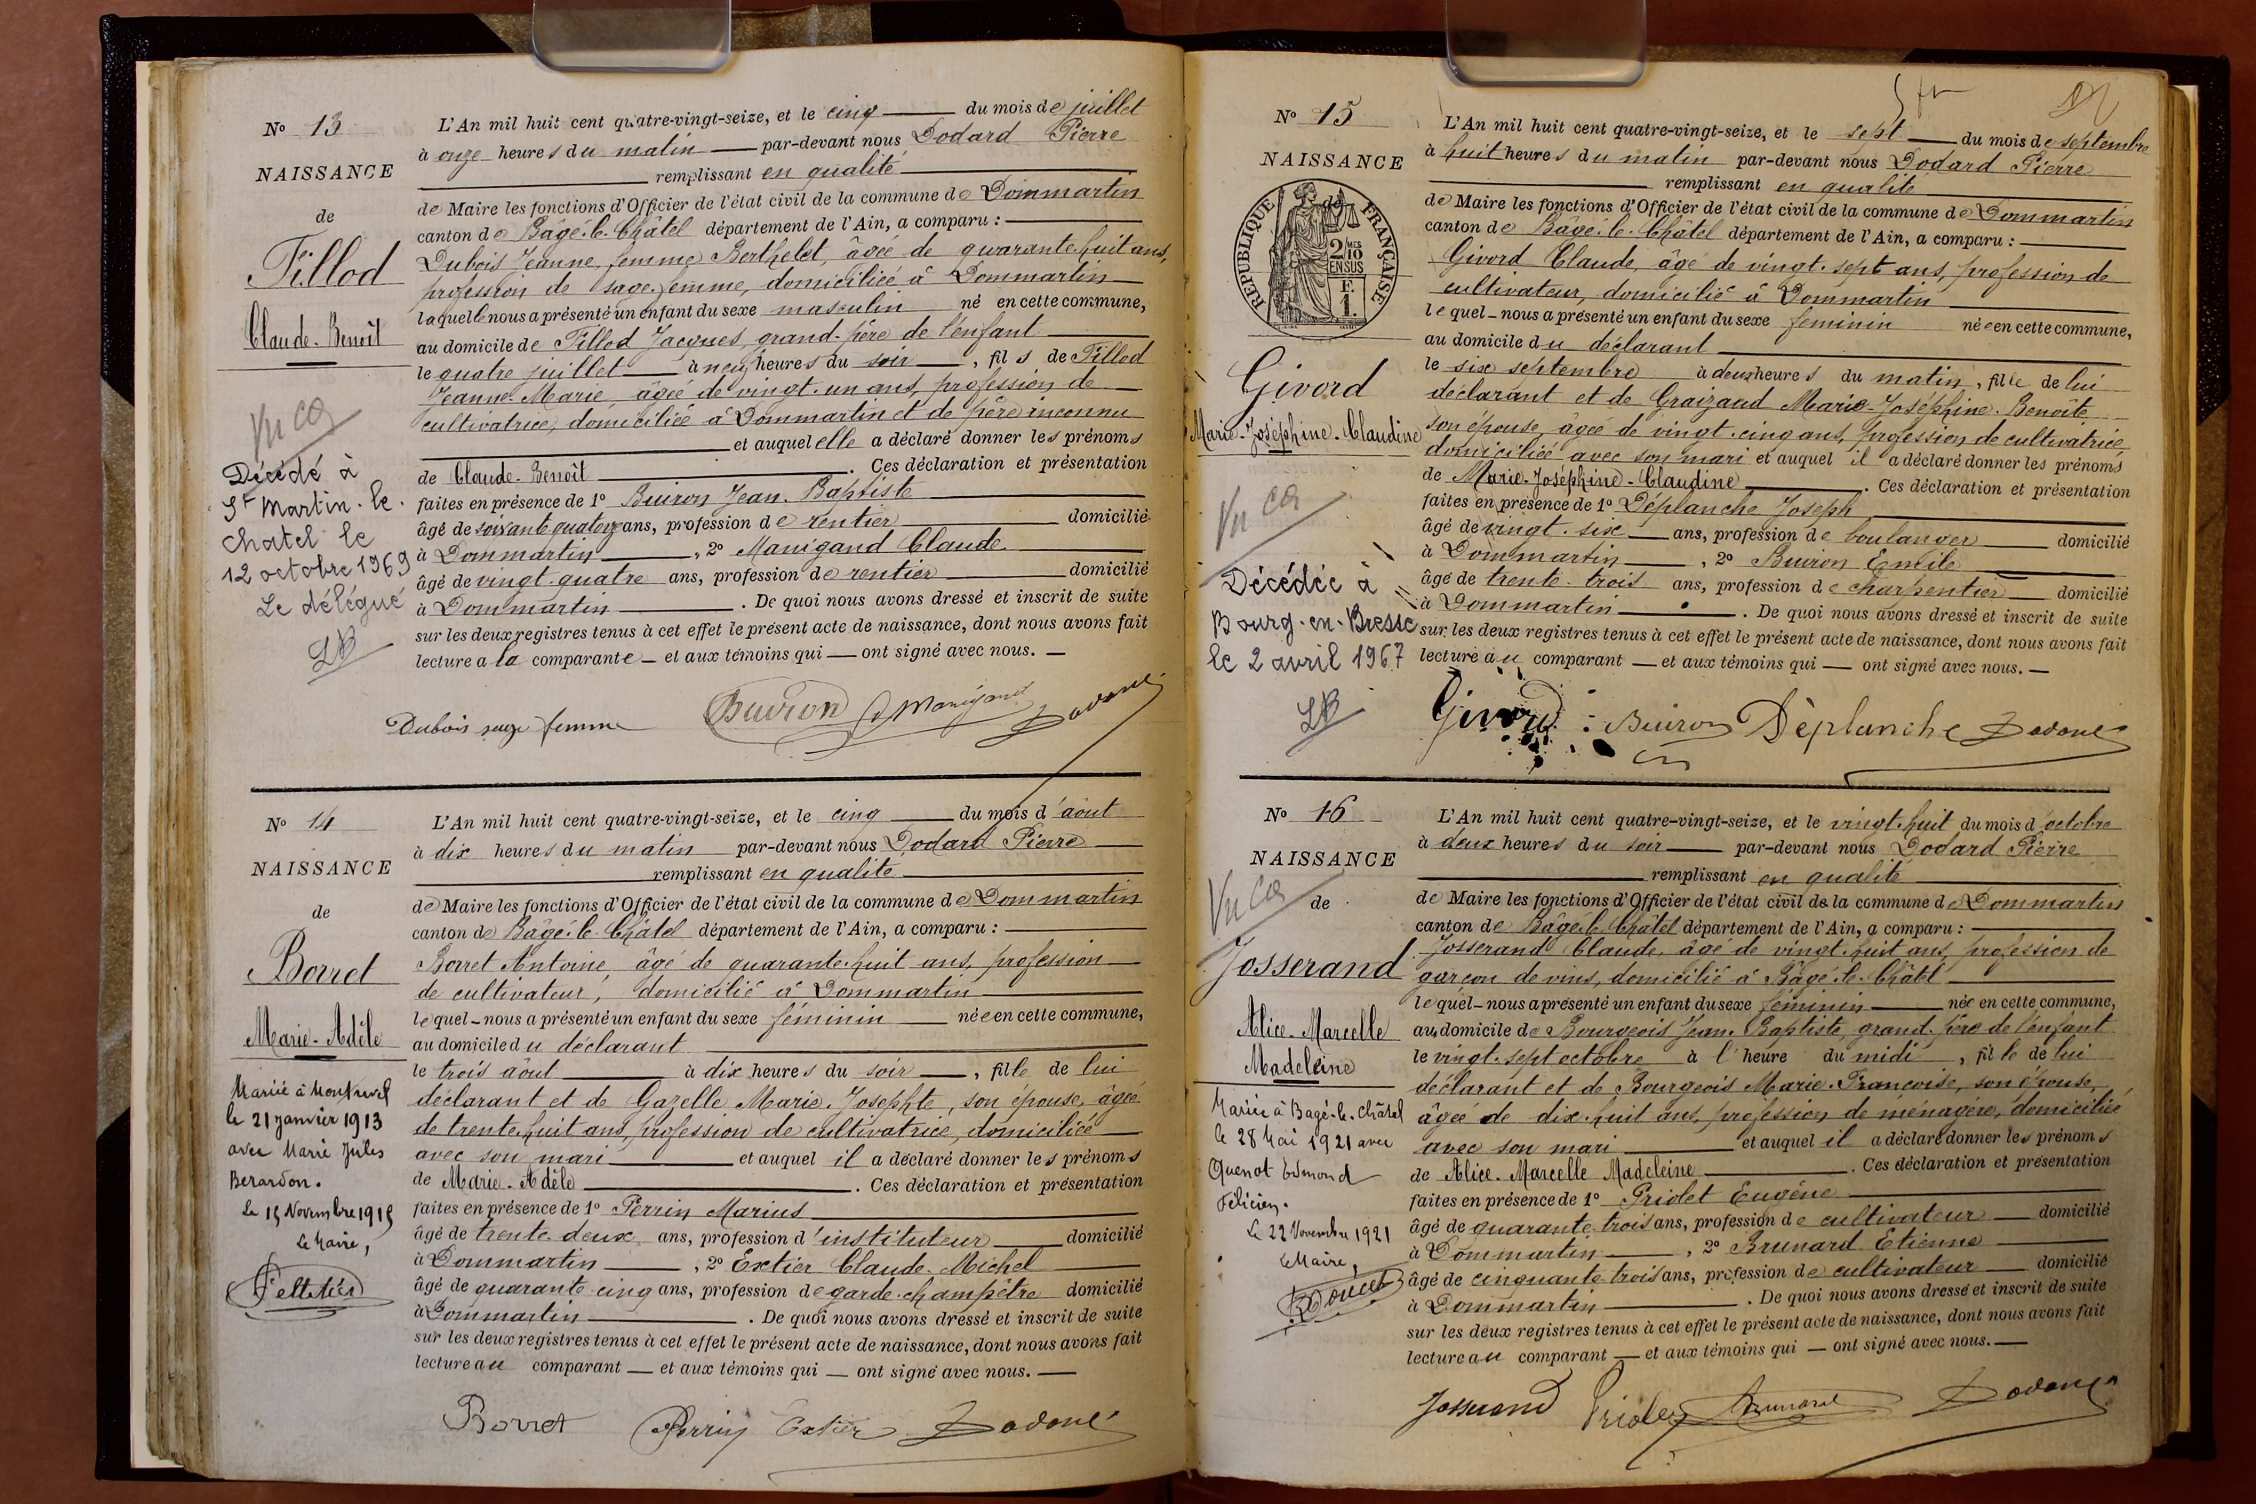 N° 13
NAISSANCE
de
Fillod
Claude-Benoît
Vu
Décédé à
St Martin-le-
Chatel le
12 octobre 1969
Le délégué
L'An mil huit cent quatre-vingt-seize, et le cinq du mois de juillet
à onze heures du matin par-devant nous Dodard Pierre
remplissant en qualité
de Maire les fonctions d'Officier de l'état civil de la commune de Dommartin
canton de Bâgé-le-Châtel département de l'Ain, a comparu :
Dubois Jeanne femme Berthelet, âgée de quarante-huit ans,
profession de sage-femme, domiciliée à Dommartin
laquelle nous a présenté un enfant du sexe masculin né en cette commune,
au domicile de Fillod Jacques, grand-père de l'enfant
le quatre juillet à neuf heures du soir, fils de Fillod
Jeanne-Marie, âgée de vingt-un ans, profession de
cultivatrice, domiciliée à Dommartin et de père inconnu
et auquel elle a déclaré donner les prénoms
de Claude-Benoît. Ces déclaration et présentation
faites en présence de 1° Buiron Jean-Baptiste
âgé de soixante quatorze ans, profession de rentier domicilié
à Dommartin, 2° Manigand Claude
âgé de vingt-quatre ans, profession de rentier domicilié
à Dommartin. De quoi nous avons dressé et inscrit de suite
sur les deux registres tenus à cet effet le présent acte de naissance, dont nous avons fait
lecture a la comparante et aux témoins qui ont signé avec nous.
Dubois sage femme Buiron Manigand Dodard
N° 14
NAISSANCE
de
Borret
Marie-Adèle
Mariée à Montrevel
le 21 janvier 1913
avec Marie Jules
Berardon.
Le 15 Novembre 1915
Le Maire,
Pelletier
L'An mil huit cent quatre-vingt-seize, et le cinq du mois d'août
à dix heures du matin par-devant nous Dodard Pierre
remplissant en qualité
de Maire les fonctions d'Officier de l'état civil de la commune de Dommartin
canton de Bâgé-le-Châtel département de l'Ain, a comparu :
Borret Antoine âgé de quarante-huit ans, profession
de cultivateur, domicilié à Dommartin
lequel nous a présenté un enfant du sexe féminin née en cette commune,
au domicile du déclarant
le trois août à dix heures du soir, fille de lui
déclarant et de Gazelle Marie-Josephte, son épouse, âgée
de trente-huit ans, profession de cultivatrice, domiciliée
avec son mari et auquel il a déclaré donner les prénoms
de Marie-Adèle. Ces déclaration et présentation
faites en présence de 1° Perrin Marius
âgé de trente-deux ans, profession d'instituteur domicilié
à Dommartin, 2° Extier Claude-Michel
âgé de quarante-cinq ans, profession de garde-champêtre domicilié
à Dommartin. De quoi nous avons dressé et inscrit de suite
sur les deux registres tenus à cet effet le présent acte de naissance, dont nous avons fait
lecture au comparant et aux témoins qui ont signé avec nous.
Borret Perrin Extier Dodard
N° 15
NAISSANCE
RÉPUBLIQUE FRANÇAISE
2/10 MES
EN SUS
F.
1.
Givord
Marie-Joséphine-Claudine
Vu
Décédée à
Bourg-en-Bresse
le 2 avril 1967
L'An mil huit cent quatre-vingt-seize, et le sept du mois de septembre
à huit heures du matin par-devant nous Dodard Pierre
remplissant en qualité
de Maire les fonctions d'Officier de l'état civil de la commune de Dommartin
canton de Bâgé-le-Châtel département de l'Ain, a comparu :
Givord Claude, âgé de vingt-sept ans, profession de
cultivateur, domicilié à Dommartin
lequel nous a présenté un enfant du sexe feminin née en cette commune,
au domicile du déclarant
le six septembre à deux heures du matin, fille de lui
déclarant et de Graizaud Marie-Joséphine-Benoîte
son épouse, âgée de vingt-cinq ans, profession de cultivatrice
domiciliée avec son mari et auquel il a déclaré donner les prénoms
de Marie-Joséphine-Claudine. Ces déclaration et présentation
faites en présence de 1° Déplanche Joseph
âgé de vingt-six ans, profession de boulanger domicilié
à Dommartin, 2° Buiron Emile
âgé de trente-trois ans, profession de charpentier domicilié
à Dommartin. De quoi nous avons dressé et inscrit de suite
sur les deux registres tenus à cet effet le présent acte de naissance, dont nous avons fait
lecture au comparant et aux témoins qui ont signé avec nous.
Givord Buiron Déplanche Dodard
N° 16
NAISSANCE
Vu
de
Josserand
Alice-Marcelle
Madeleine
Mariée à Bagé-le-Châtel
le 28 Mai 1921 avec
Quenot Edmond
Félicien.
Le 22 Novembre 1921
Le Maire,
Doucet
L'An mil huit cent quatre-vingt-seize, et le vingt-huit du mois d'octobre
à deux heures du soir par-devant nous Dodard Pierre
remplissant en qualité
de Maire les fonctions d'Officier de l'état civil de la commune de Dommartin
canton de Bâgé-le-Châtel département de l'Ain, a comparu :
Josserand Claude, âgé de vingt-huit ans, profession de
garçon de vins, domicilié à Bâgé-le-Châtel
lequel nous a présenté un enfant du sexe féminin née en cette commune,
au domicile de Bourgeois Jean-Baptiste, grand-père de l'enfant
le vingt-sept octobre à l'heure du midi, fille de lui
déclarant et de Bourgeois Marie-Françoise, son épouse,
âgée de dix-huit ans, profession de ménagère, domiciliée
avec son mari et auquel il a déclaré donner les prénoms
de Alice-Marcelle Madeleine. Ces déclaration et présentation
faites en présence de 1° Priolet Eugène
âgé de quarante-trois ans, profession de cultivateur domicilié
à Dommartin, 2° Brunard Etienne
âgé de cinquante-trois ans, profession de cultivateur domicilié
à Dommartin. De quoi nous avons dressé et inscrit de suite
sur les deux registres tenus à cet effet le présent acte de naissance, dont nous avons fait
lecture au comparant et aux témoins qui ont signé avec nous.
Josserand Priolet Brunard Dodard